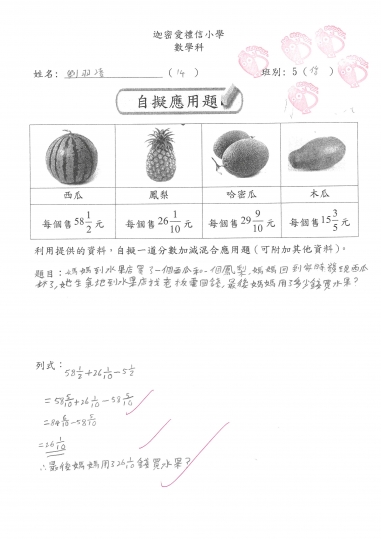 迦密愛禮信小學
數學科
姓名: 劉羽清 ( 14 ) 班別: 5 ( 信 )
自擬應用題
西瓜 鳳梨 哈密瓜 木瓜
每個售 58 1/2 元 每個售 26 1/10 元 每個售 29 9/10 元 每個售 15 3/5 元
利用提供的資料，自擬一道分數加減混合應用題 (可附加其他資料)。
題目: 媽媽到水果店買了一個西瓜和一個鳳梨，媽媽回到家時發現西瓜
壞了，她生氣地到水果店找老板要回錢，最後媽媽用了多少錢買水果？
列式:
58 1/2 + 26 1/10 - 5 1/2
= 58 5/10 + 26 1/10 - 58 5/10
= 84 6/10 - 58 5/10
= 26 1/10
∴最後媽媽用了26 1/10 錢買水果？